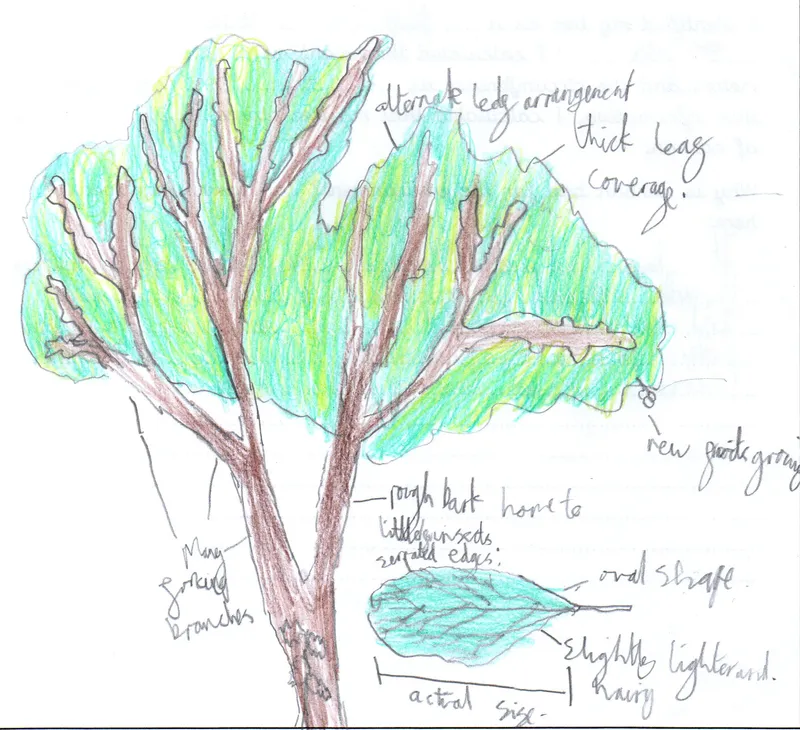 alternate leaf arrangement
thick leaf
coverage.
new fruits growing
rough bark home to
little insects
serrated edges:
oval shape.
Slightly lighter and.
hairy
actual size.
Many
forking
branches